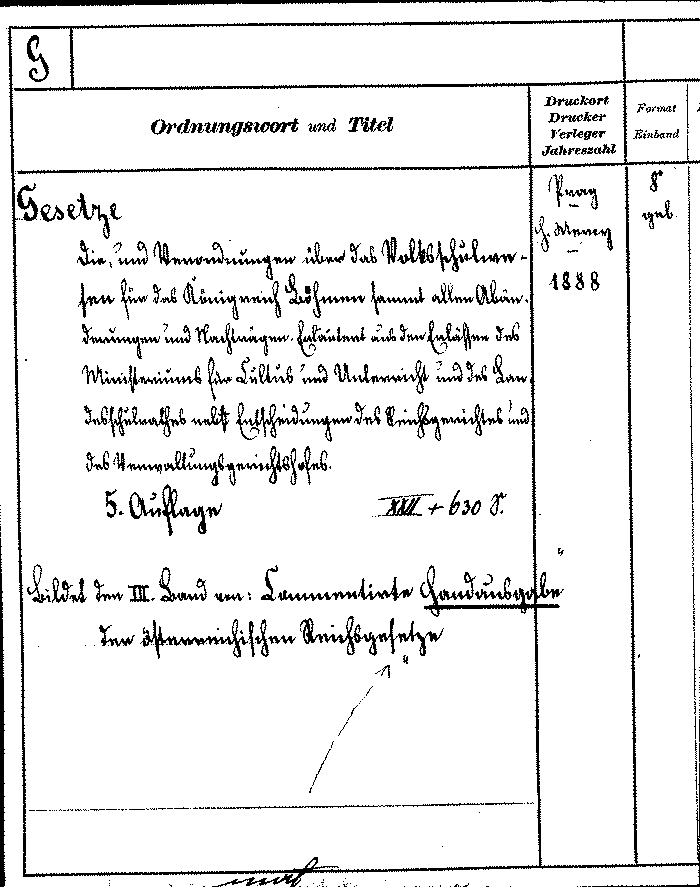 G
Ordnungswort und Titel
Druckort
Drucker
Verleger
Jahreszahl
Format
Einband
Gesetze
Prag
H. Mercy
1888
8°
geb
Die, und Verordnungen über das Volksschulwe-
sen für das Königreich Böhmen sammt allen Abän-
derungen und Nachträgen. Erläutert aus den Erlässen des
Ministeriums für Cultus und Unterricht und des Lan-
desschulrathes nebst Entscheidungen des Reichsgerichtes und
des Verwaltungsgerichtshofes.
5. Auflage XXII + 630 S.
Bildet den III. Band von: Commentirte Handausgabe
der österreichischen Reichsgesetze "